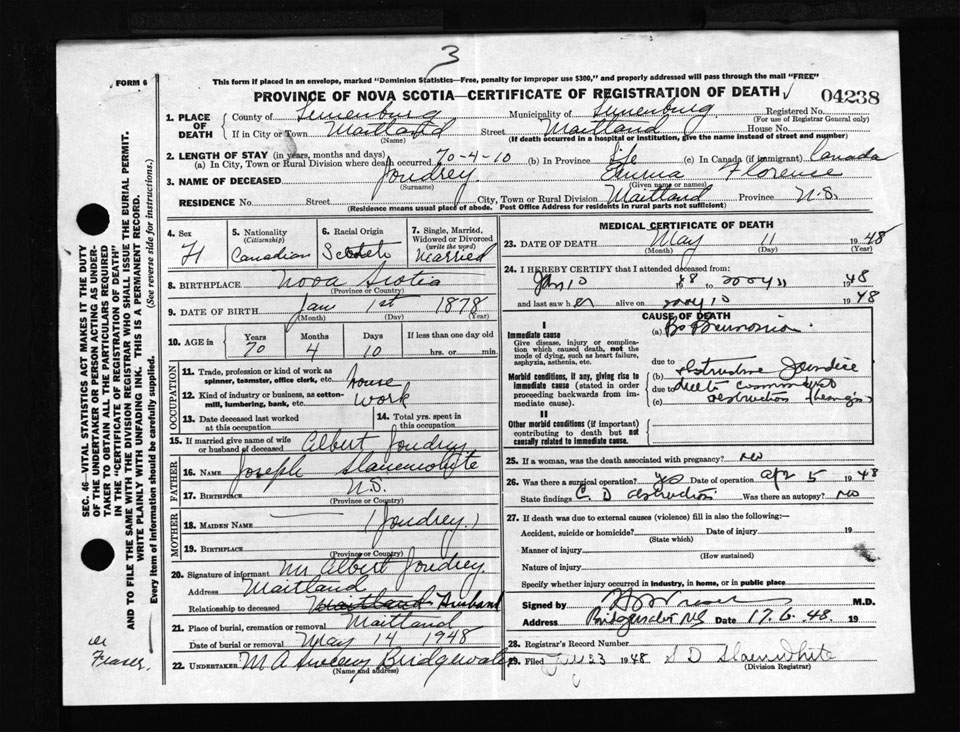 3
FORM 6
This form if placed in an envelope, marked "Dominion Statistics—Free, penalty for improper use $300," and properly addressed will pass through the mail "FREE"
PROVINCE OF NOVA SCOTIA—CERTIFICATE OF REGISTRATION OF DEATH
04238
1. PLACE OF DEATH
County of Lunenburg Municipality of Lunenburg Registered No.
(For use of Registrar General only)
If in City or Town Maitland Street Maitland House No.
(Name) (If death occurred in a hospital or institution, give the name instead of street and number)
2. LENGTH OF STAY (in years, months and days)
(a) In City, Town or Rural Division where death occurred 70-4-10 (b) In Province life (c) In Canada (if immigrant) Canada
3. NAME OF DECEASED Joudrey Emma Florence
(Surname) (Given name or names)
RESIDENCE No. Street City, Town or Rural Division Maitland Province N.S.
(Residence means usual place of abode. Post Office Address for residents in rural parts not sufficient)
4. Sex
5. Nationality (Citizenship) Canadian
6. Racial Origin
7. Single, Married, Widowed or Divorced (write the word) Married
8. BIRTHPLACE Nova Scotia
(Province or Country)
9. DATE OF BIRTH Jan 1st 1878
(Month) (Day) (Year)
10. AGE in Years Months Days If less than one day old
70 4 10 hrs. or min.
OCCUPATION
11. Trade, profession or kind of work as spinner, teamster, office clerk, etc. house
12. Kind of industry or business, as cotton-mill, lumbering, bank, etc. work
13. Date deceased last worked at this occupation
14. Total yrs. spent in this occupation
15. If married give name of wife or husband of deceased Albert Joudrey
FATHER
16. NAME Joseph Slauenwhite
17. BIRTHPLACE N.S.
(Province or Country)
MOTHER
18. MAIDEN NAME (Joudrey.)
19. BIRTHPLACE
(Province or Country)
20. Signature of informant Mr Albert Joudrey
Address Maitland
Relationship to deceased Maitland Husband
21. Place of burial, cremation or removal Maitland
Date of burial or removal May 14 1948
22. UNDERTAKER M A Sweeny Bridgewater
(Name and address)
MEDICAL CERTIFICATE OF DEATH
23. DATE OF DEATH May 11 1948
(Month) (Day) (Year)
24. I HEREBY CERTIFY that I attended deceased from:
Jan 10 1948 to May 11 1948
and last saw her alive on May 10 1948
CAUSE OF DEATH
I
Immediate cause
Give disease, injury or complication which caused death, not the mode of dying, such as heart failure, asphyxia, asthenia, etc.
(a) Br Pneumonia
due to
Morbid conditions, if any, giving rise to immediate cause (stated in order proceeding backwards from immediate cause).
(b) Obstructive Jaundice
due to
(c) obstruction (benign)
II
Other morbid conditions (if important) contributing to death but not causally related to immediate cause.
25. If a woman, was the death associated with pregnancy? no
26. Was there a surgical operation? yes Date of operation Apr 5 1948
State findings C D obstruction Was there an autopsy? no
27. If death was due to external causes (violence) fill in also the following:—
Accident, suicide or homicide? Date of injury 19
(State which)
Manner of injury
(How sustained)
Nature of injury
Specify whether injury occurred in industry, in home, or in public place
Signed by M.D.
Address Bridgewater NS Date 17.6.48. 19
28. Registrar's Record Number
29. Filed July 23 1948 S D Slauenwhite
(Division Registrar)
SEC. 46—VITAL STATISTICS ACT MAKES IT THE DUTY OF THE UNDERTAKER OR PERSON ACTING AS UNDERTAKER TO OBTAIN ALL THE PARTICULARS REQUIRED IN THE "CERTIFICATE OF REGISTRATION OF DEATH" AND TO FILE THE SAME WITH THE DIVISION REGISTRAR WHO SHALL ISSUE THE BURIAL PERMIT.
WRITE PLAINLY WITH UNFADING INK. THIS IS A PERMANENT RECORD.
Every item of information should be carefully supplied. (See reverse side for instructions.)
er
Fraser.